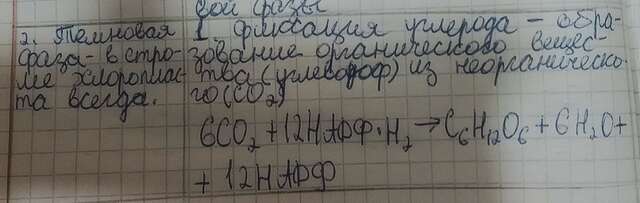 вой фазы
2. Темновая
фаза - в стро-
ме хлороплас-
та всегда.
1. фиксация углерода - обра-
зование органического вещес-
тва (углевороф) из неорганическо-
го (CO₂)
6CO₂ + 12НАДФ·H₂ → C₆H₁₂O₆ + 6H₂O +
+ 12НАДФ